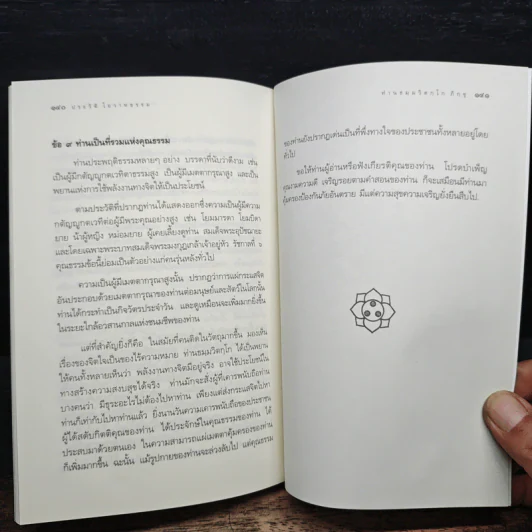 ๑๔๐ ประวัติ โอวาทธรรม
ข้อ ๙ ท่านเป็นที่รวมแห่งคุณธรรม
ท่านประพฤติธรรมหลายๆ อย่าง บรรดาที่นับว่าดีงาม เช่น
เป็นผู้มีกตัญญูกตเวทิตาธรรมสูง เป็นผู้มีเมตตากรุณาสูง และเป็น
พยานแห่งการใช้พลังงานทางจิตให้เป็นประโยชน์
ตามประวัติที่ปรากฏท่านได้แสดงออกซึ่งความเป็นผู้มีความ
กตัญญูกตเวทีต่อผู้มีพระคุณอย่างสูง เช่น โยมมารดา โยมบิดา
ยาย น้าผู้หญิง หม่อมยาย ผู้เคยเลี้ยงดูท่าน สมเด็จพระอุปัชฌายะ
และโดยเฉพาะพระบาทสมเด็จพระมงกุฎเกล้าเจ้าอยู่หัว รัชกาลที่ ๖
คุณธรรมข้อนี้ย่อมเป็นตัวอย่างแก่คนรุ่นหลังทั่วไป
ความเป็นผู้มีเมตตากรุณาสูงนั้น ปรากฏว่าการแผ่กระแสจิต
อันประกอบด้วยเมตตากรุณาของท่านต่อมนุษย์และสัตว์ในโลกนั้น
ท่านได้กระทำเป็นกิจวัตรประจำวัน และดูเหมือนจะเพิ่มมากยิ่งขึ้น
ในระยะใกล้อวสานกาลแห่งชนมชีพของท่าน
แต่ที่สำคัญยิ่งก็คือ ในสมัยที่คนติดในวัตถุมากขึ้น มองเห็น
เรื่องของจิตใจเป็นของไร้ความหมาย ท่านธมฺมวิตกฺโก ได้เป็นพยาน
ให้คนทั้งหลายเห็นว่า พลังงานทางจิตมีอยู่จริง อาจใช้ประโยชน์ใน
ทางสร้างความสงบสุขได้จริง ท่านมักจะสั่งผู้ที่เคารพนับถือท่าน
บางคนว่า มีธุระอะไรไม่ต้องไปหาท่าน เพียงแต่ส่งกระแสจิตไปหา
ท่านก็เท่ากับไปหาท่านแล้ว ยิ่งนานวันความเคารพนับถือของประชาชน
ผู้ได้สดับกิตติคุณของท่าน ได้ประจักษ์ในคุณธรรมของท่าน ได้
ประสบมาด้วยตนเอง ในความสามารถแผ่เมตตาคุ้มครองของท่าน
ก็เพิ่มมากขึ้น ฉะนั้น แม้รูปกายของท่านจะล่วงลับไป แต่คุณธรรม
ท่านธมฺมวิตกฺโก ภิกขุ ๑๔๑
ของท่านยังปรากฏเด่นเป็นที่พึ่งทางใจของประชาชนทั้งหลายอยู่โดย
ทั่วไป
ขอให้ท่านผู้อ่านหรือฟังเกียรติคุณของท่าน โปรดบำเพ็ญ
คุณงามความดี เจริญรอยตามคำสอนของท่าน ก็จะเสมือนมีท่านมา
คุ้มครองป้องกันภัยอันตราย มีแต่ความสุขความเจริญยั่งยืนสืบไป.